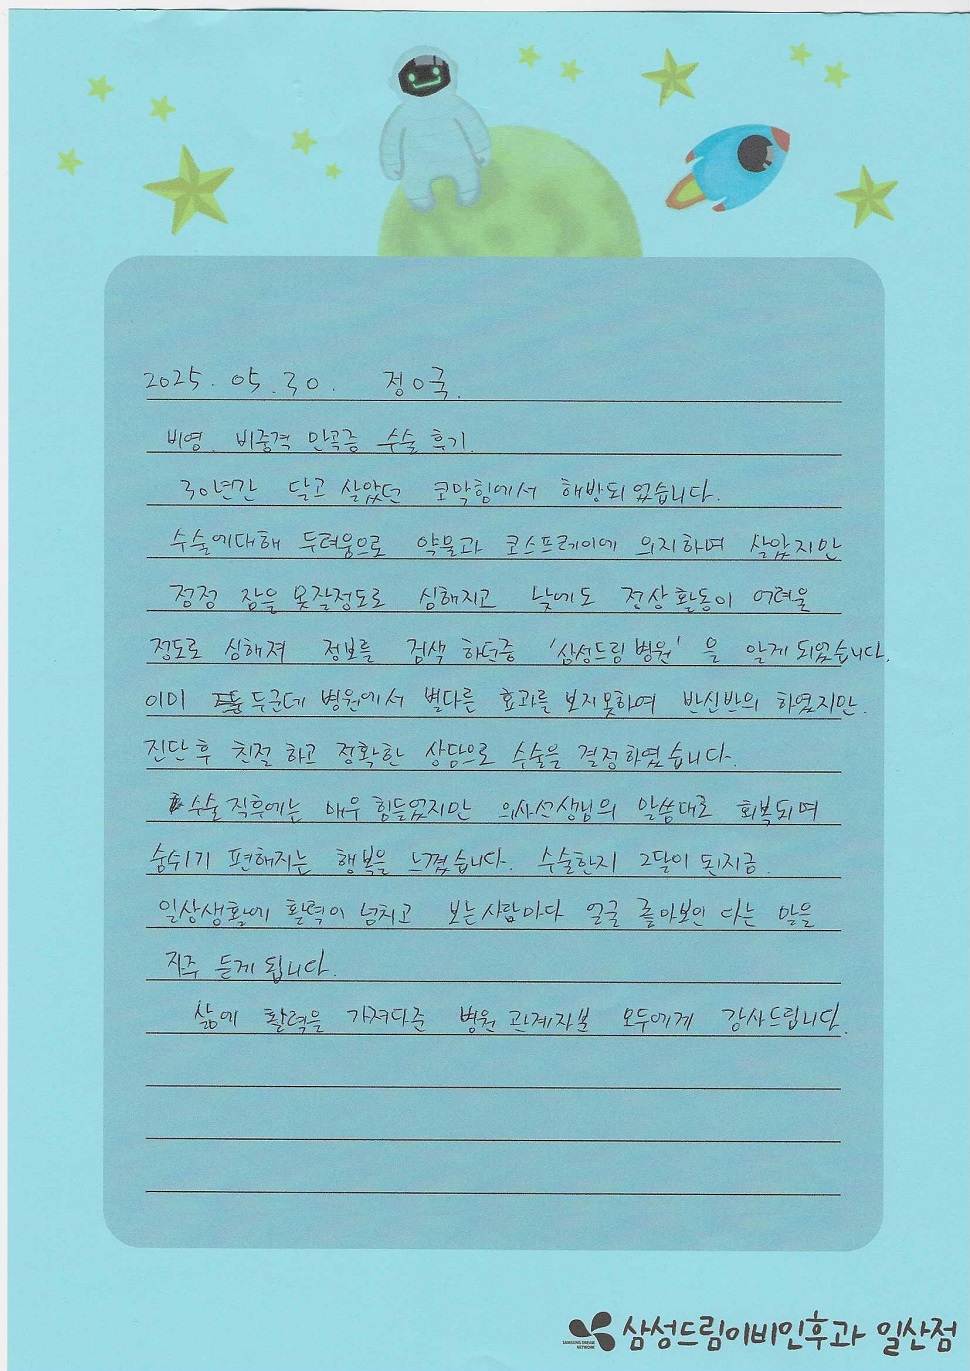 2025. 05. 30. 정O국.
비염. 비중격 만곡증 수술 후기.
30년간 달고 살았던 코막힘에서 해방되었습니다.
수술에대해 두려움으로 약물과 코스프레이에 의지하며 살았지만
점점 잠을 못잘정도로 심해지고 낮에도 정상활동이 어려울
정도로 심해져 정보를 검색 하던중 '삼성드림 병원' 을 알게 되었습니다.
이미 두군데 병원에서 별다른 효과를 보지못하여 반신반의 하였지만.
진단 후 친절 하고 정확한 상담으로 수술을 결정하였습니다.
수술 직후에는 매우 힘들었지만 의사선생님의 말씀대로 회복되며
숨쉬기 편해지는 행복을 느꼈습니다. 수술한지 2달이 된지금.
일상생활에 활력이 넘치고 보는사람마다 얼굴 좋아보인 다는 말을
자주 듣게 됩니다.
삶에 활력을 가져다준 병원 관계자분 모두에게 감사드립니다.
SAMSUNG DREAM NETWORK
삼성드림이비인후과 일산점